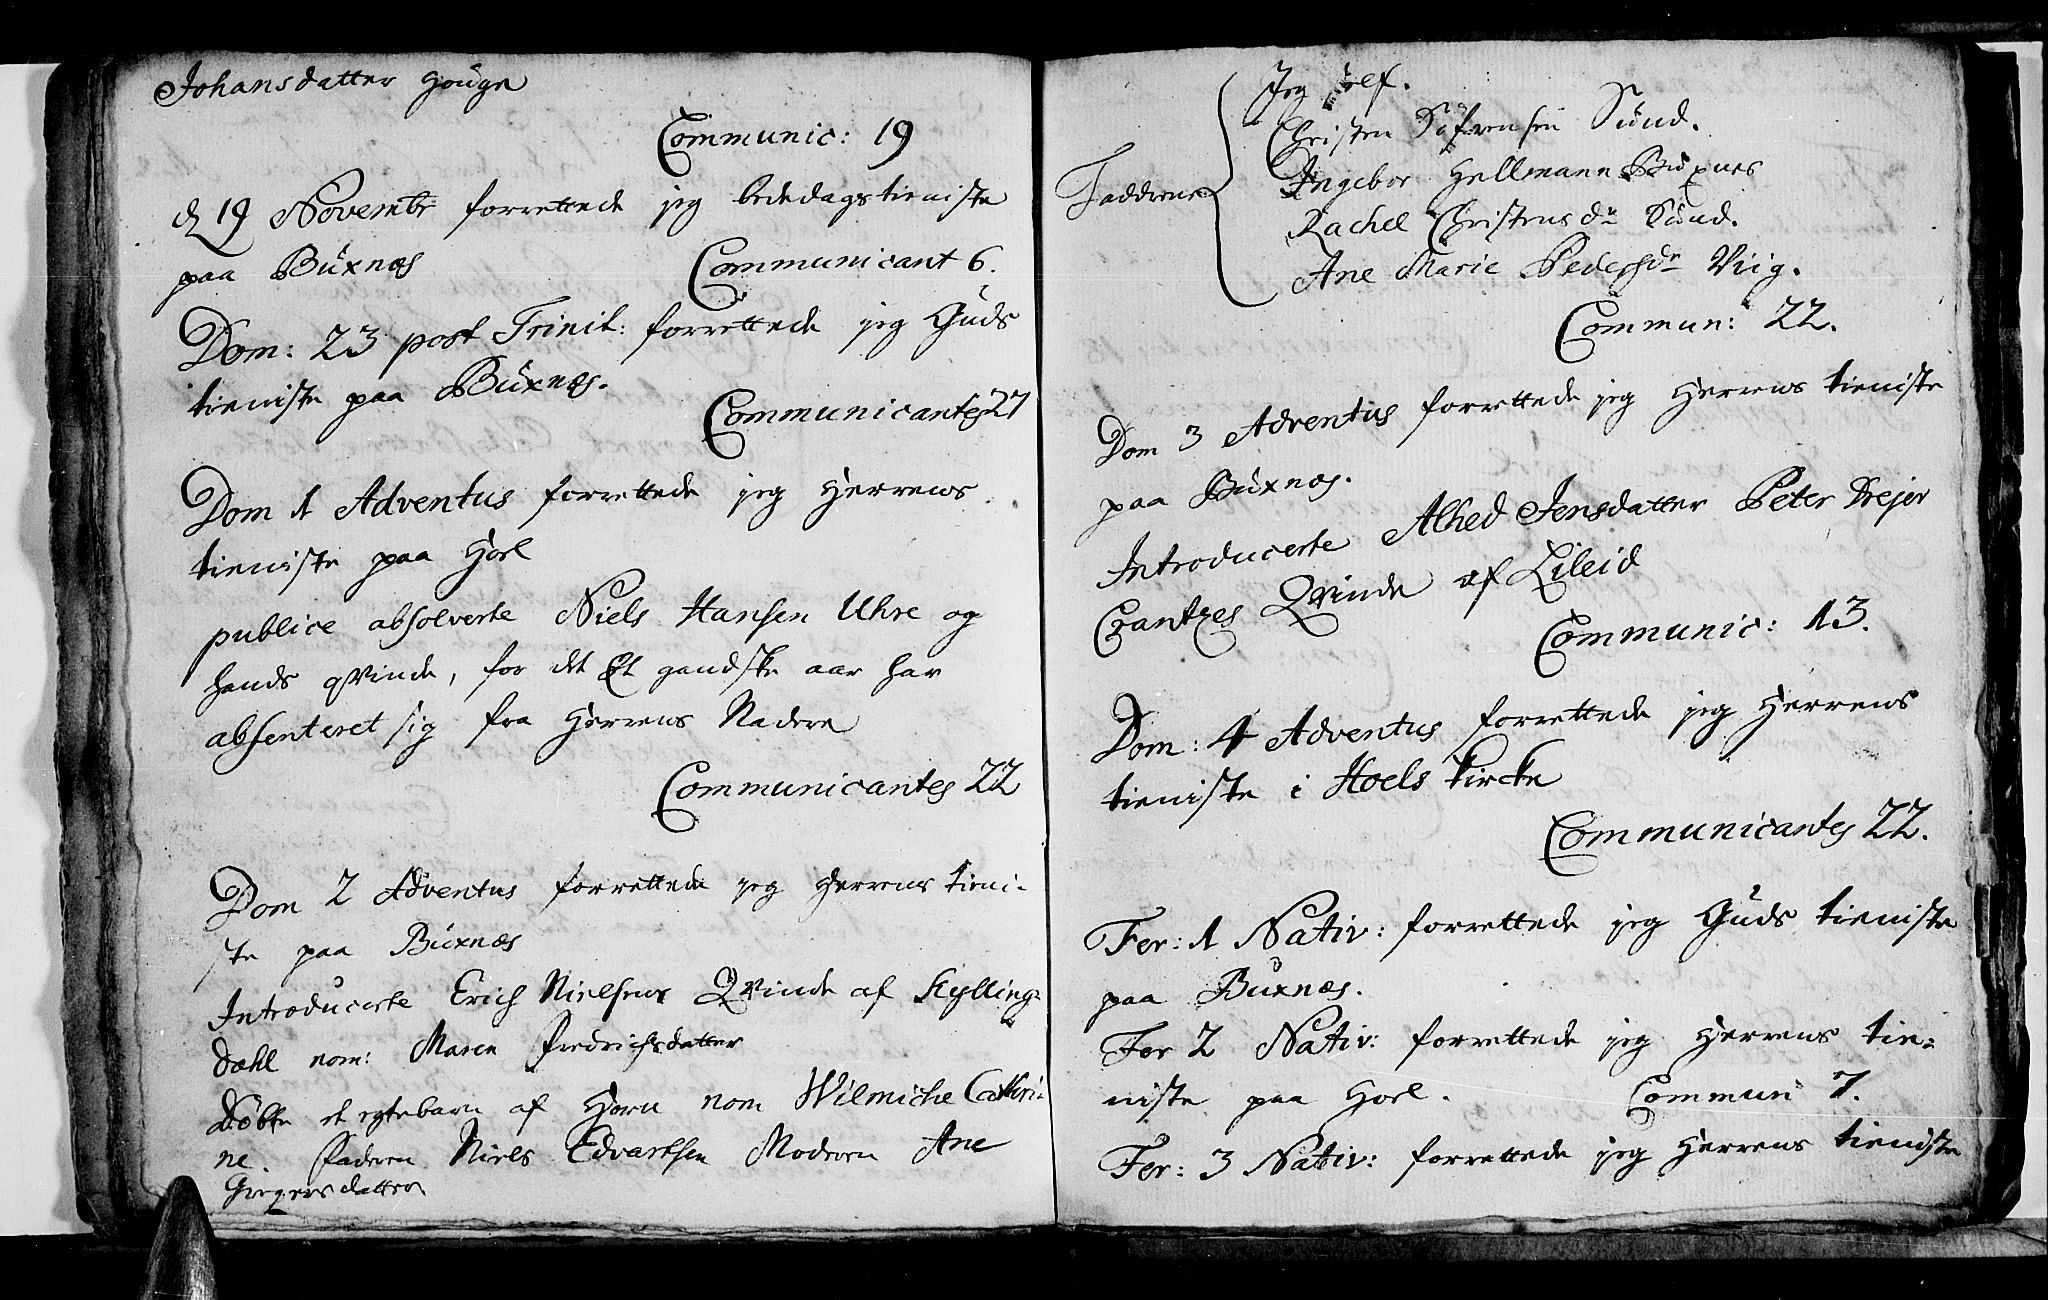 Johansdatter Houge
Communic: 19
d 19 Novembr forrettede jeg bededagstieniste
paa Buxnæs Communicant 6.
Dom: 23 post Trinit: forrettede jeg Guds
tieniste paa Buxnæs.
Communicantes 27
Dom 1 Adventus forrettede jeg Herrens
tieniste paa Hoel
publice absolverte Niels Hansen Uhre og
hands qvinde, for det Et gandske aar har
absenteret sig fra Herrens Nadere
Communicantes 22
Dom 2 Adventus forrettede jeg Herrens tieni-
ste paa Buxnæs
Introducerte Erich Nielsens Qvinde af Kylling-
dahl nom: Maren Fredrichsdatter
Døbte et egtebarn af Horn nom Wilmiche Cathri-
ne. Faderen Niels Edvartsen Moderen Ane
Gregersdatter
Jeg self.
Christen Söfrensen Sund.
Fadderne Ingebor Hellmann Buxnes
Rachel Christensdr Sund.
Ane Marie Pedersdr Viig.
Commun: 22.
Dom 3 Adventus forrettede jeg Herrens tieniste
paa Buxnæs.
Introducerte Alhed Jensdatter Peter Drejer
Crantzes Qvinde af Lileid
Communic: 13.
Dom: 4 Adventus forrettede jeg Herrens
tieniste i Hoels kircke
Communicantes 22.
Fer: 1 Nativ: forrettede jeg Guds tieniste
paa Buxnæs.
Fer 2 Nativ: forrettede jeg Herrens tie-
niste paa Hoel. Commun 7.
Fer: 3 Nativ: forrettede jeg Herrens tieniste